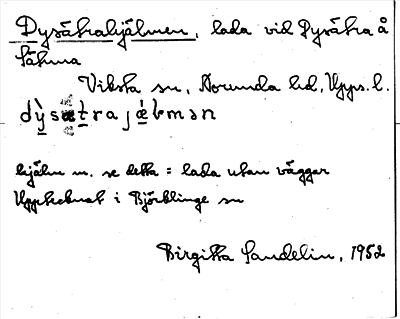 Dysätrahjälmen, lada vid Dysätra å
Viksta sn, Norunda hd, Upps. l.
dỳsätrajæ̀lmən
hjälm m. se detta = lada utan väggar
Upptecknat i Björklinge sn
Birgitta Sandelin, 1952